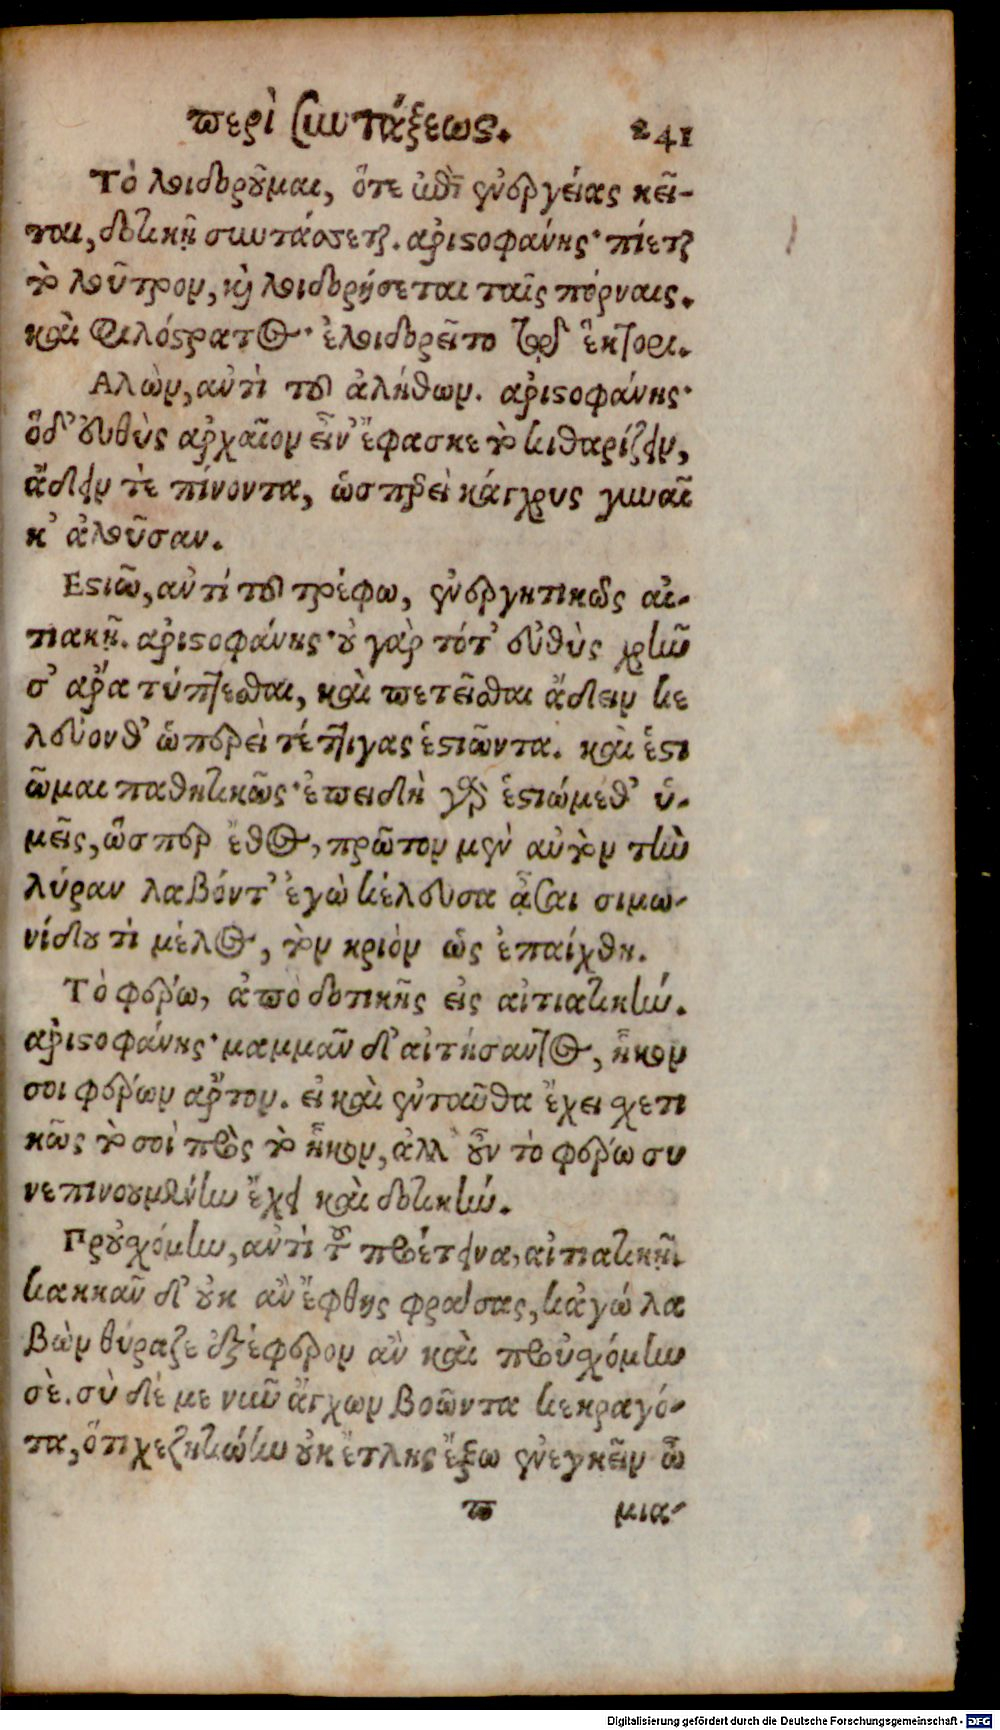 περὶ συντάξεως. 241
Τὸ λοιδοροῦμαι, ὅτε ἐπὶ ἐνεργείας κεῖ-
ται, δοτικῇ συντάσσεται. ἀριστοφάνης· πίεται
τὸ λοῦτρον, καὶ λοιδορήσεται ταῖς πόρναις.
καὶ Φιλόστρατος· ἐλοιδορεῖτο τῷ ἕκτορι.
Αλῶν, ἀντὶ τοῦ ἀλήθων. ἀριστοφάνης·
ὅδ' εὐθὺς ἀρχαῖον εἶν' ἔφασκε τὸ κιθαρίζειν,
ᾄδειν τὲ πίνοντα, ὡσπερεὶ κάγχρυς γυναῖ
κ' ἀλοῦσαν.
Εστιῶ, ἀντί τοῦ τρέφω, ἐνεργητικῶς αἰ-
τιακῇ. ἀριστοφάνης· οὐ γὰρ τότ' εὐθὺς χρῆν
σ' ἄρα τύπτεσθαι, καὶ πετεῖσθαι ᾄδειν κε
λεύονθ' ὡπερεὶ τέττιγας ἑστιῶντα. καὶ ἑστι
ῶμαι παθητικῶς· ἐπειδὴ γὰρ ἑστιώμεθ' ὑ-
μεῖς, ὥσπερ ἔθος, πρῶτον μὲν αὐτὸν τὴν
λύραν λαβόντ' ἐγὼ κέλευσα ᾆσαι σιμω-
νίδου τὶ μέλος, τὸν κριὸν ὡς ἐπαίχθη.
Τὸ φέρω, ἀπὸ δοτικῆς εἰς αἰτιατικήν.
ἀριστοφάνης· μαμμᾶν δ' αἰτήσαντος, ἧκον
σοι φέρων ἄρτον. εἰ καὶ ἐνταῦθα ἔχει σχετι
κῶς τὸ σοὶ πρὸς τὸ ἧκον, ἀλλ' οὖν τὸ φέρω συ
νεπινουμένην ἔχει καὶ δοτικήν.
Πρὐσχόμην, ἀντὶ τοῦ προέτεινα, αἰτιατικῇ
κακκᾶν δ' οὐκ ἂν ἔφθης φράσας, κἀγώ λα
βὼν θύραζε ἐξέφερον ἂν καὶ προὐσχόμην
σὲ. σὺ δέ με νῦν ἄγχων βοῶντα κεκραγό-
τα, ὅτι χεζητιῴην οὐκ ἔτλης ἔξω ἐνεγκεῖν ὦ
π μια-
Digitalisierung gefördert durch die Deutsche Forschungsgemeinschaft - DFG